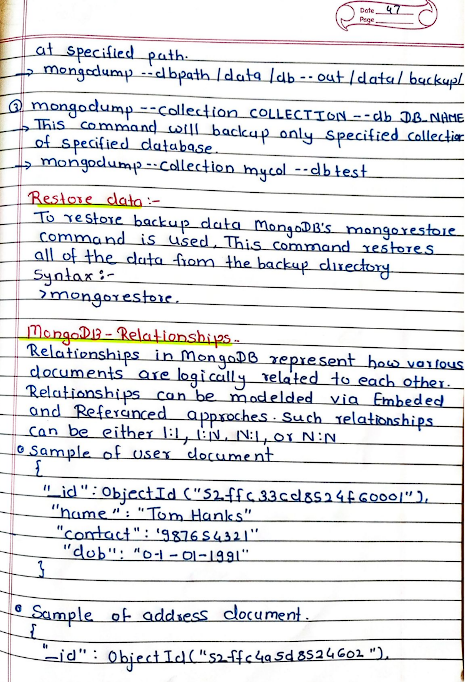 Date 47
Page
at specified path.
→ mongodump --dbpath /data/db --out /data/backup/
③ mongodump --collection COLLECTION --db DB_NAME
→ This command will backup only specified collection
of specified database.
→ mongodump --collection mycol --db test
Restore data :-
To restore backup data MongoDB's mongorestore
command is used. This command restores
all of the data from the backup directory
Syntax :-
>mongorestore.
MongoDB - Relationships -
Relationships in MongoDB represent how various
documents are logically related to each other.
Relationships can be modelded via Embeded
and Referanced approches. Such relationships
can be either 1:1, 1:N, N:1, or N:N
• Sample of user document
{
"_id" : ObjectId ("52ffc33cd8524f60001"),
"name" : "Tom Hanks"
"contact" : '987654321"
"dob" : "01-01-1991"
}
• Sample of address document.
{
"_id" : ObjectId("52ffc4a5d8524602"),